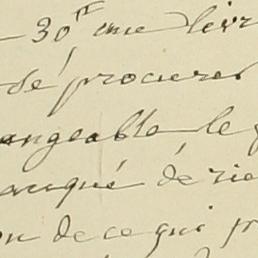 30ff une livr
de procurer
angeable le
anqué de rie
on de ce qui p